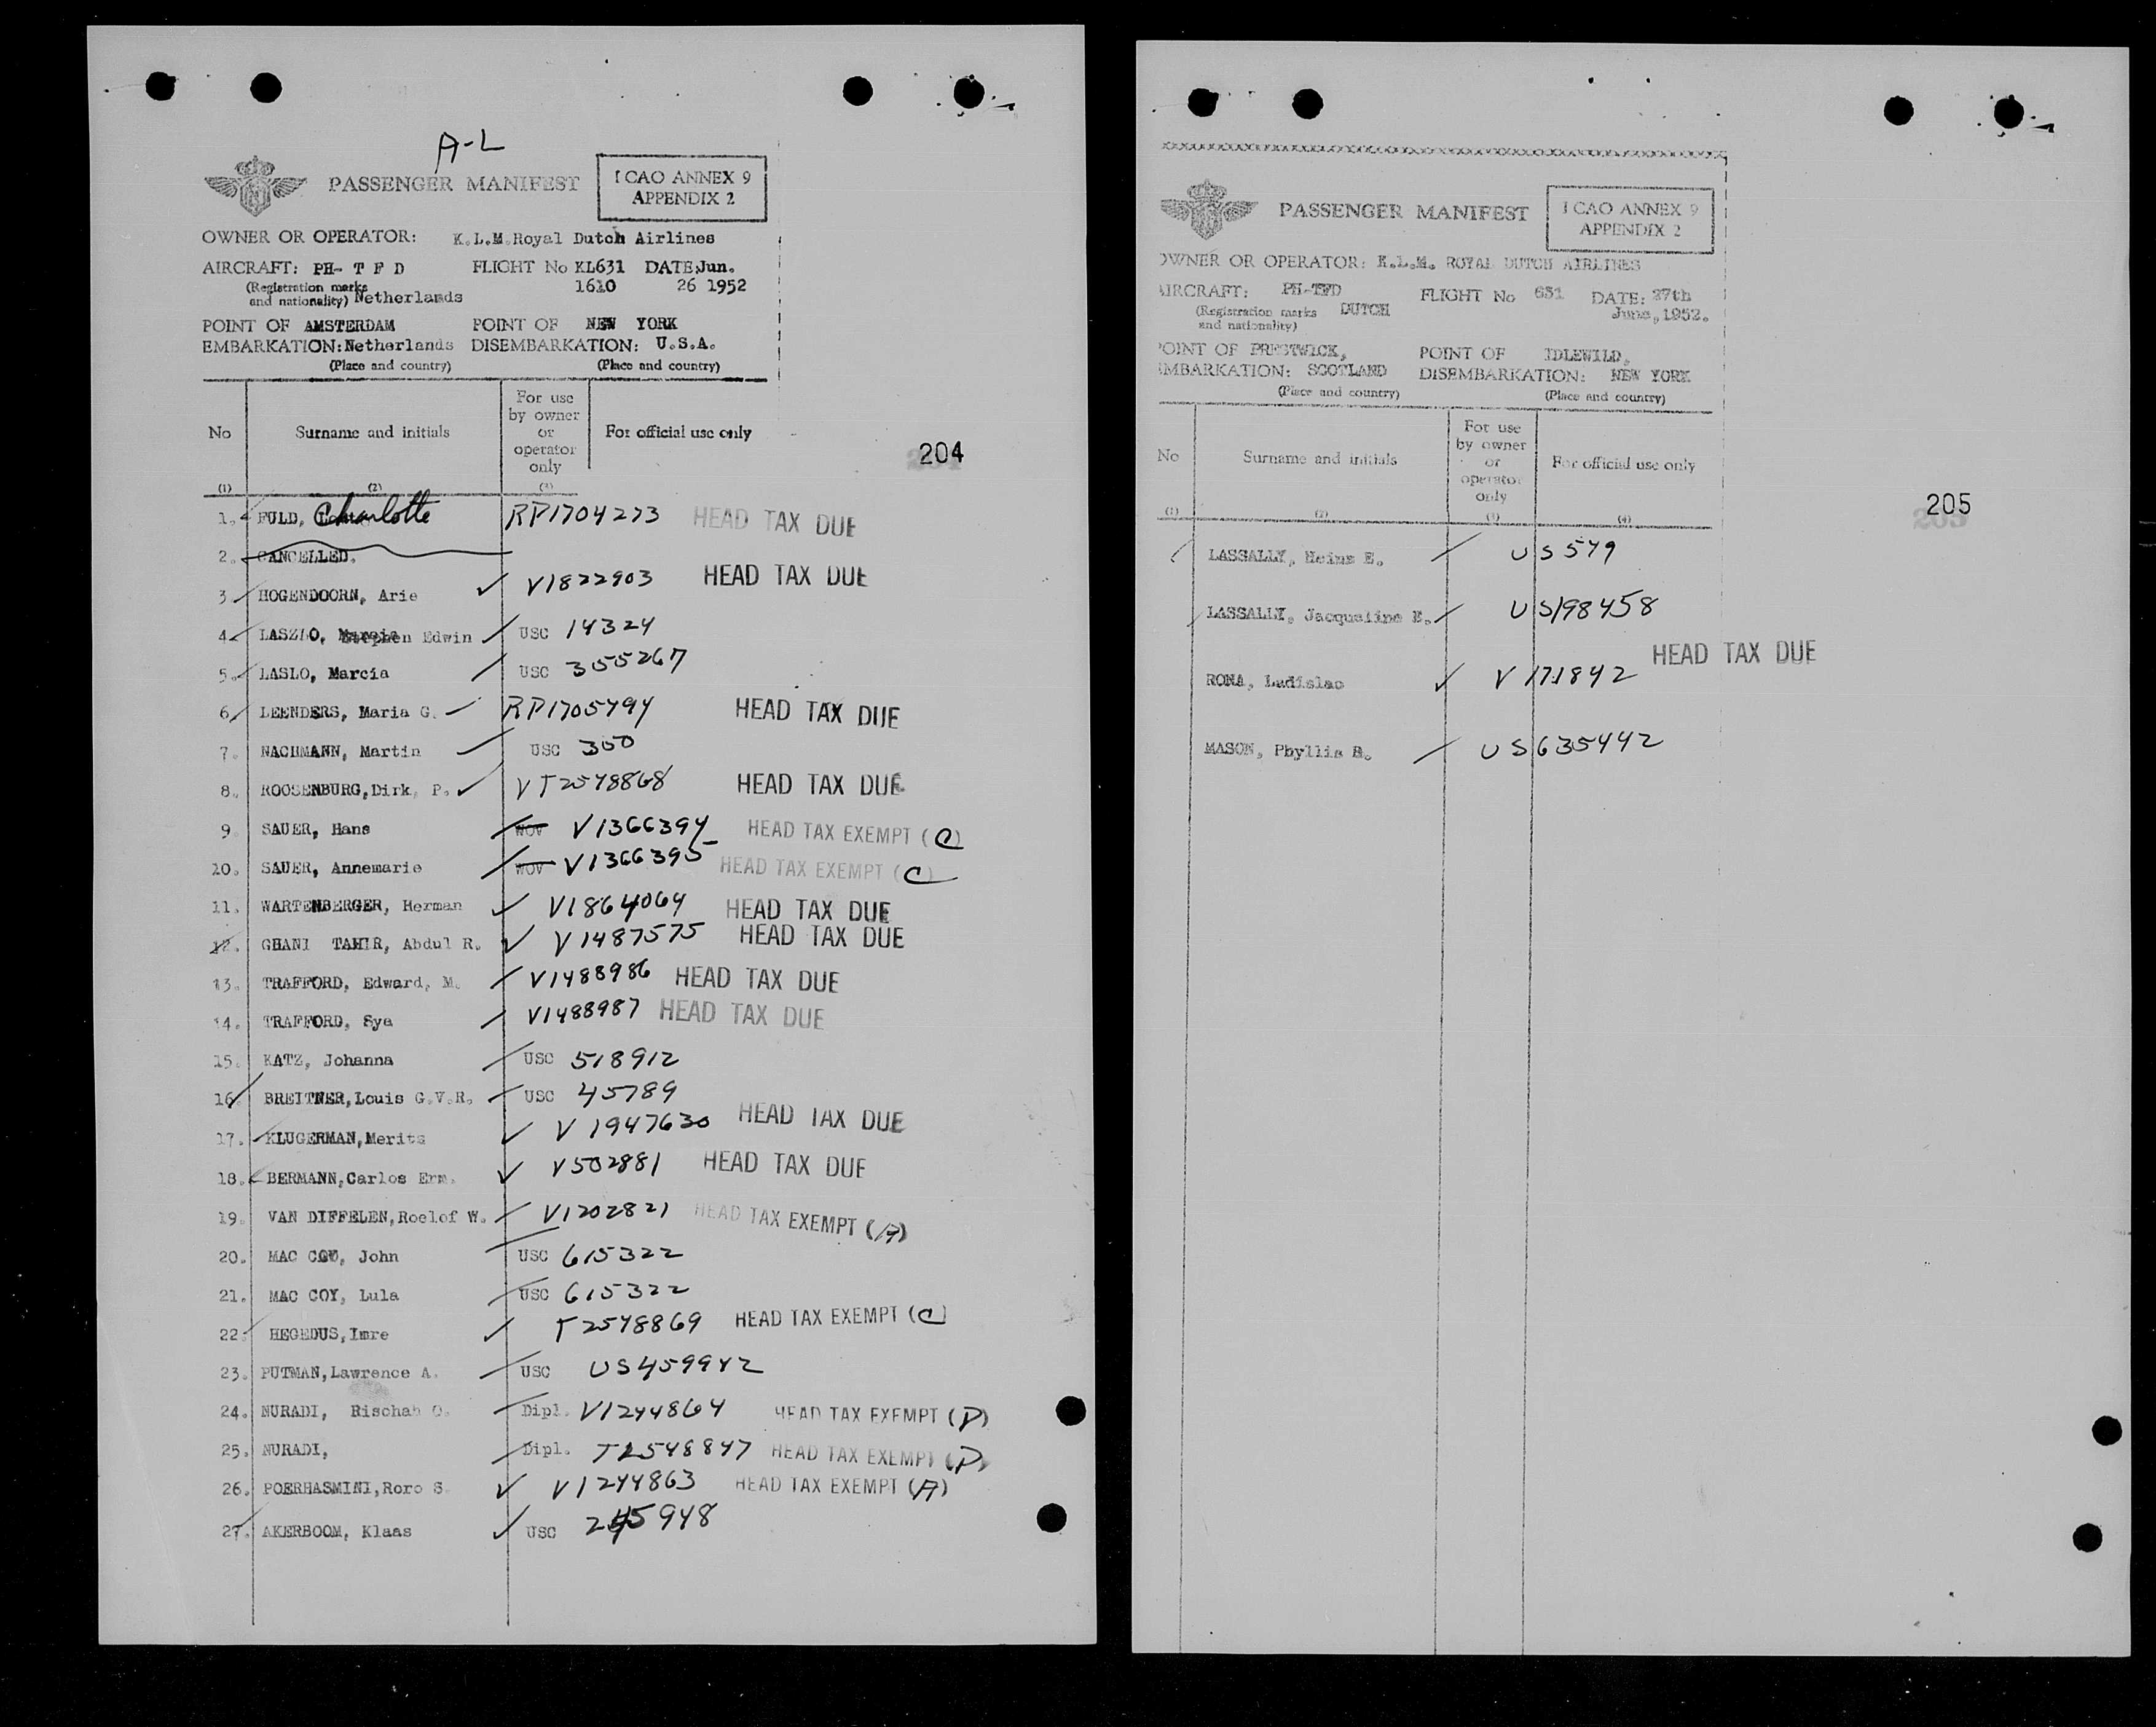 A-L
PASSENGER MANIFEST
ICAO ANNEX 9
APPENDIX 2
OWNER OR OPERATOR: K.L.M. Royal Dutch Airlines
AIRCRAFT: PH- T F D FLIGHT No KL631 DATE: Jun.
(Registration marks 1610 26 1952
and nationality) Netherlands
POINT OF AMSTERDAM POINT OF NEW YORK
EMBARKATION: Netherlands DISEMBARKATION: U.S.A.
(Place and country) (Place and country)
No Surname and initials For use by owner or operator only For official use only
204
(1) (2) (3)
1. FULD, Charlotte RP1704273 HEAD TAX DUE
2. CANCELLED.
3 HOGENDOORN, Arie V1822903 HEAD TAX DUE
4. LASZLO, Stephen Edwin USC 14324
5. LASLO, Marcia USC 355267
6. LEENDERS, Maria G. RP1705794 HEAD TAX DUE
7. NACHMANN, Martin USC 300
8. ROOSENBURG, Dirk P. VT2578868 HEAD TAX DUE
9. SAUER, Hans WOV V1366394 HEAD TAX EXEMPT (C)
10. SAUER, Annemarie WOV V1366395 HEAD TAX EXEMPT (C)
11. WARTENBERGER, Herman V1864064 HEAD TAX DUE
12. GHANI TAHIR, Abdul R. V1487575 HEAD TAX DUE
13. TRAFFORD, Edward, M. V1488986 HEAD TAX DUE
14. TRAFFORD, Sya V1488987 HEAD TAX DUE
15. KATZ, Johanna USC 518912
16. BREITNER, Louis G.V.R. USC 45789
17. KLUGERMAN, Merits V 1947630 HEAD TAX DUE
18. BERMANN, Carlos Erm. V502881 HEAD TAX DUE
19. VAN DIFFELEN, Roelof W. V1202821 HEAD TAX EXEMPT (A)
20. MAC COY, John USC 615322
21. MAC COY, Lula USC 615322
22. HEGEDUS, Imre T2578869 HEAD TAX EXEMPT (C)
23. PUTMAN, Lawrence A. USC US459942
24. NURADI, Rischab O. Dipl. V1244864 HEAD TAX EXEMPT (D)
25. NURADI, Dipl. T2548847 HEAD TAX EXEMPT (D)
26. POERHASMINI, Roro S. V1244863 HEAD TAX EXEMPT (A)
27. AKERBOOM, Klaas USC 245948
PASSENGER MANIFEST
ICAO ANNEX 9
APPENDIX 2
OWNER OR OPERATOR: K.L.M. ROYAL DUTCH AIRLINES
AIRCRAFT: PH-TFD FLIGHT No 631 DATE: 27th
(Registration marks DUTCH June, 1952.
and nationality)
POINT OF PRESTWICK, POINT OF IDLEWILD,
EMBARKATION: SCOTLAND DISEMBARKATION: NEW YORK
(Place and country) (Place and country)
No Surname and initials For use by owner or operator only For official use only
205
(1) (2) (3) (4)
LASSALLY, Heinz E. US 579
LASSALLY, Jacqueline E. US198458
HEAD TAX DUE
RONA, Ladislao V 171842
MASON, Phyllis B. US635442